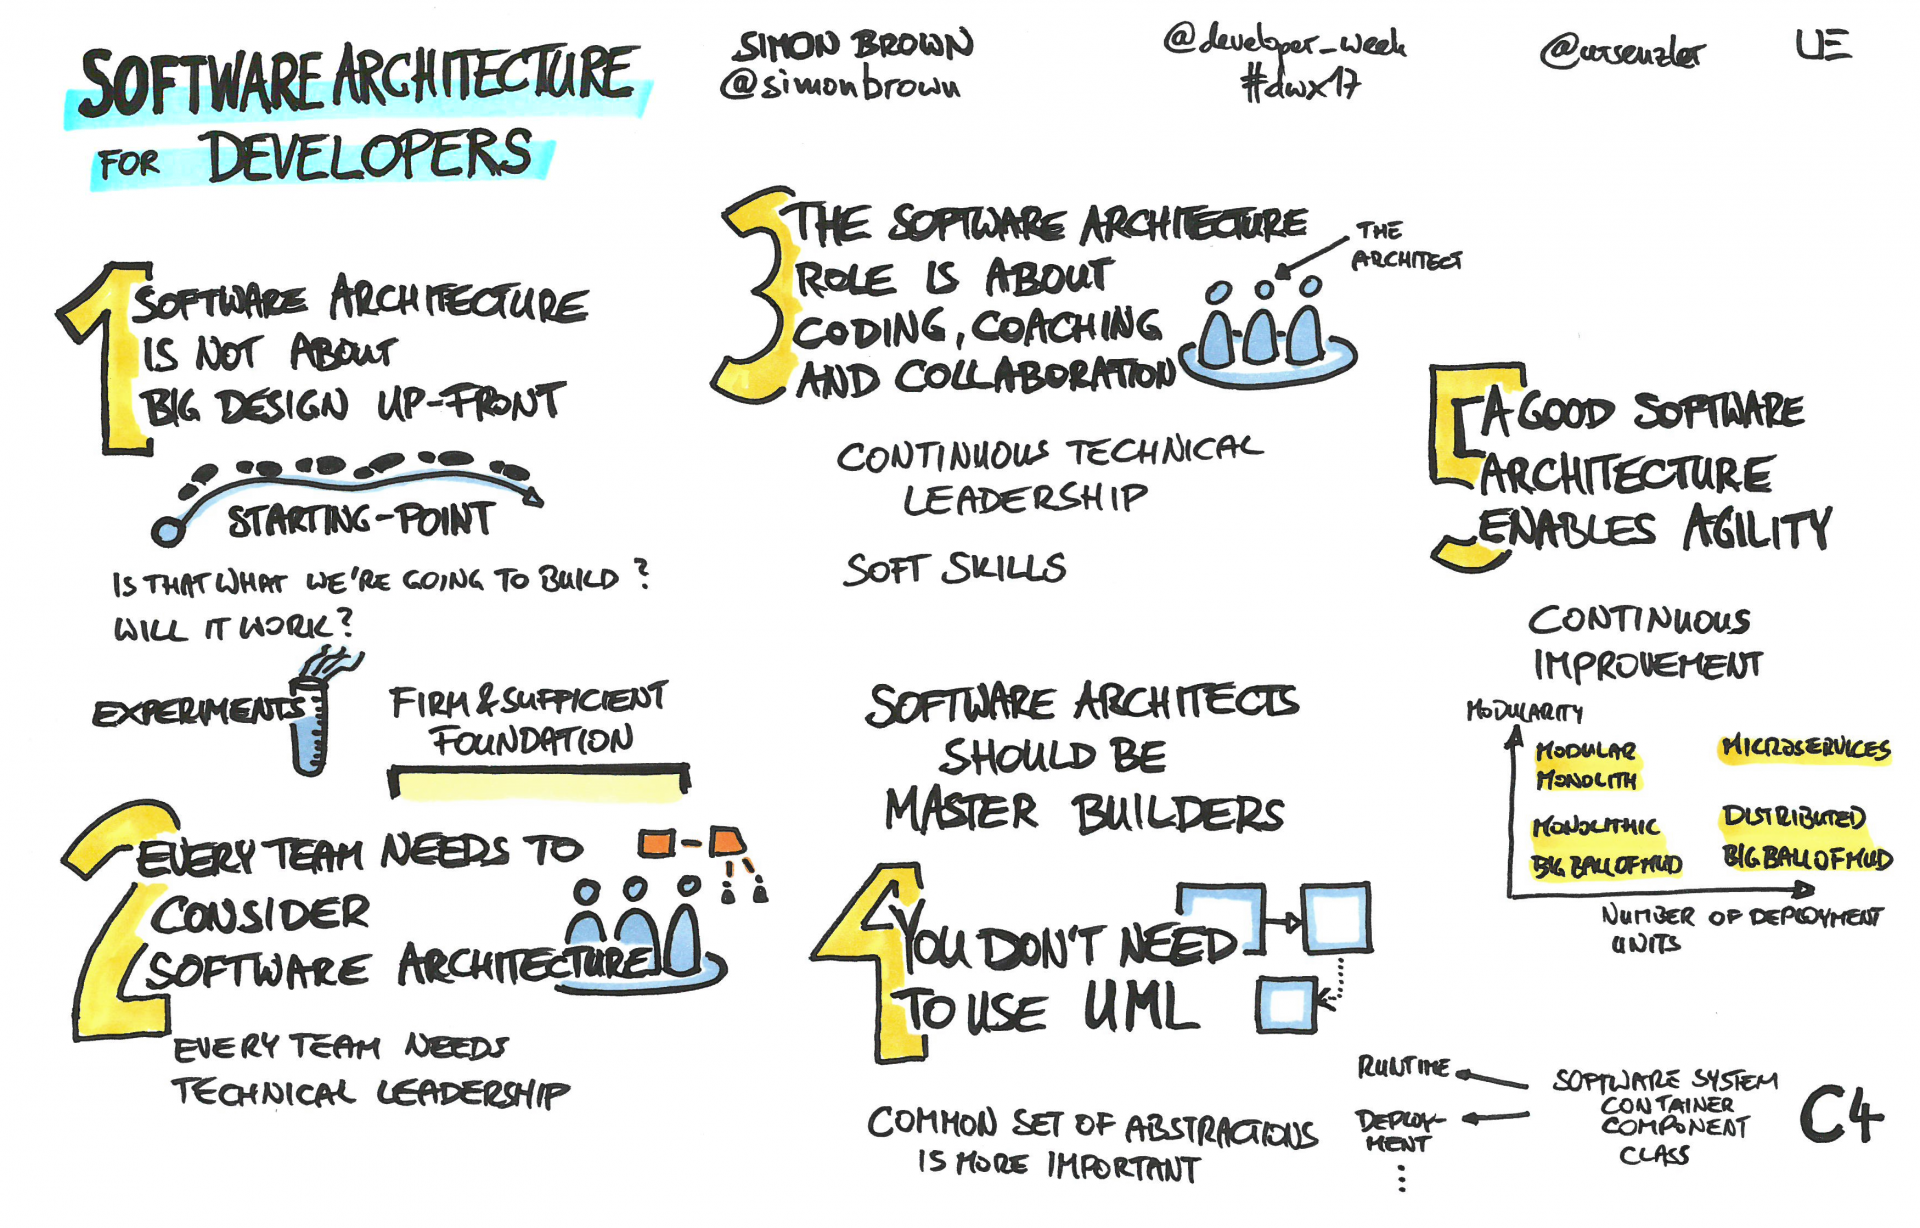 SOFTWARE ARCHITECTURE
FOR DEVELOPERS
SIMON BROWN
@simonbrown
@developer_week
#dwx17
@ursenzler
UE
1 SOFTWARE ARCHITECTURE
IS NOT ABOUT
BIG DESIGN UP-FRONT
STARTING-POINT
IS THAT WHAT WE'RE GOING TO BUILD?
WILL IT WORK?
EXPERIMENTS
FIRM & SUFFICIENT
FOUNDATION
2 EVERY TEAM NEEDS TO
CONSIDER
SOFTWARE ARCHITECTURE
EVERY TEAM NEEDS
TECHNICAL LEADERSHIP
3 THE SOFTWARE ARCHITECTURE
ROLE IS ABOUT
CODING, COACHING
AND COLLABORATION
THE
ARCHITECT
CONTINUOUS TECHNICAL
LEADERSHIP
SOFT SKILLS
SOFTWARE ARCHITECTS
SHOULD BE
MASTER BUILDERS
4 YOU DON'T NEED
TO USE UML
COMMON SET OF ABSTRACTIONS
IS MORE IMPORTANT
RUNTIME
DEPLOY-
MENT
⋮
SOFTWARE SYSTEM
CONTAINER
COMPONENT
CLASS
C4
5 A GOOD SOFTWARE
ARCHITECTURE
ENABLES AGILITY
CONTINUOUS
IMPROVEMENT
MODULARITY
MODULAR
MONOLITH
MICROSERVICES
MONOLITHIC
BIG BALL OF MUD
DISTRIBUTED
BIG BALL OF MUD
NUMBER OF DEPLOYMENT
UNITS